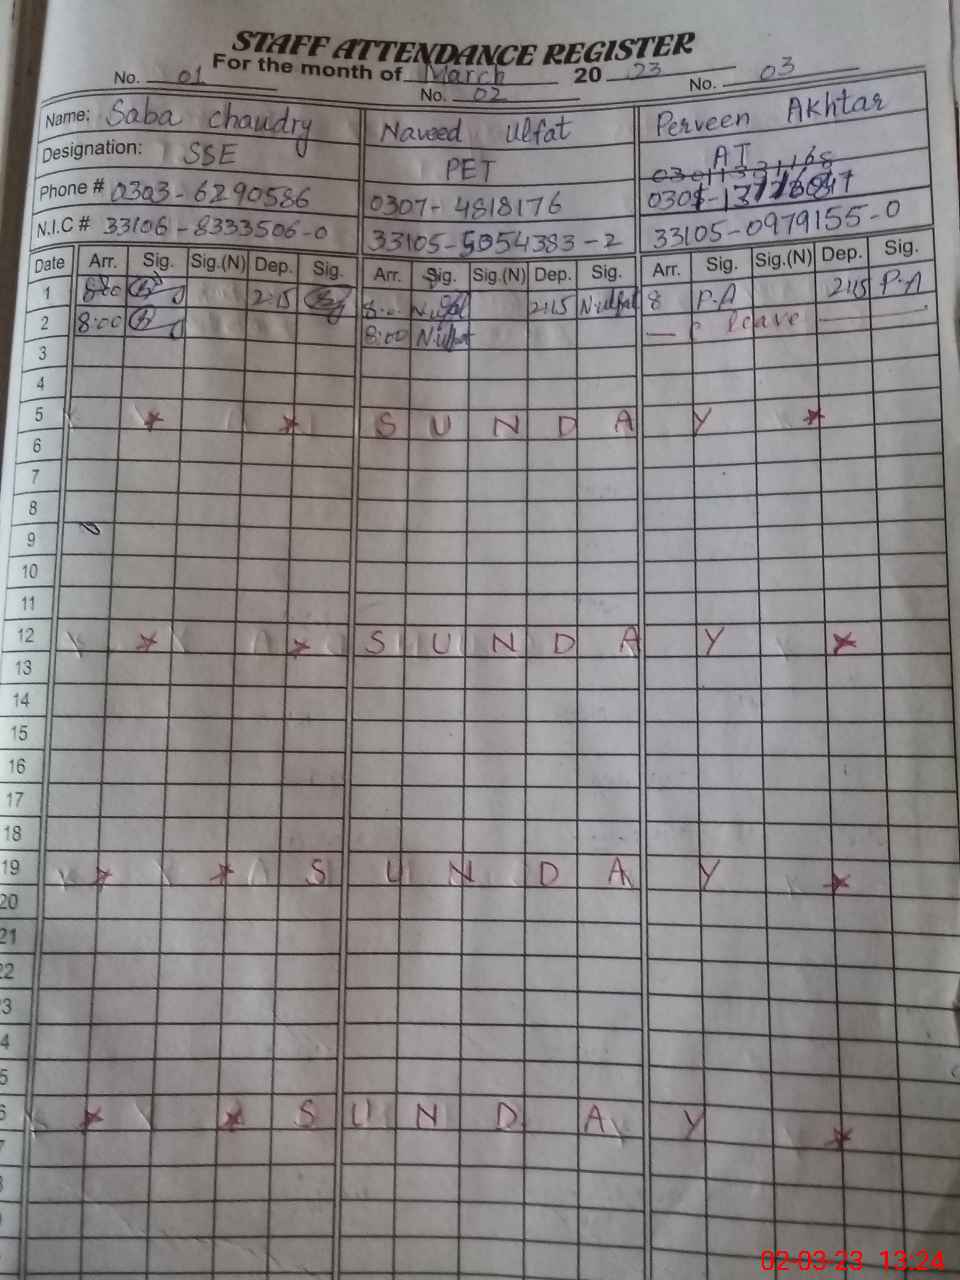 STAFF ATTENDANCE REGISTER
For the month of March 20 23
No. 01 No. 02 No. 03
Name: Saba chaudry Naveed Ulfat Perveen Akhtar
Designation: SSE PET AT
Phone # 0303-6290586 0307-4818176
N.I.C # 33106-8333506-0 33105-5054383-2 33105-0979155-0
Date Arr. Sig. Sig.(N) Dep. Sig. Arr. Sig. Sig.(N) Dep. Sig. Arr. Sig. Sig.(N) Dep. Sig.
1 8:00 2:15 8:00 N.ulfat 2:15 N.ulfat 8 P.A 2:15 P.A
2 8:00 8:00 N.ulfat leave
3
4
5 * * S U N D A Y *
6
7
8
9
10
11
12 * * S U N D A Y *
13
14
15
16
17
18
19 * * S U N D A Y *
20
21
22
3
4
5
6 * * S U N D A Y *
7
02-03-23 13:24